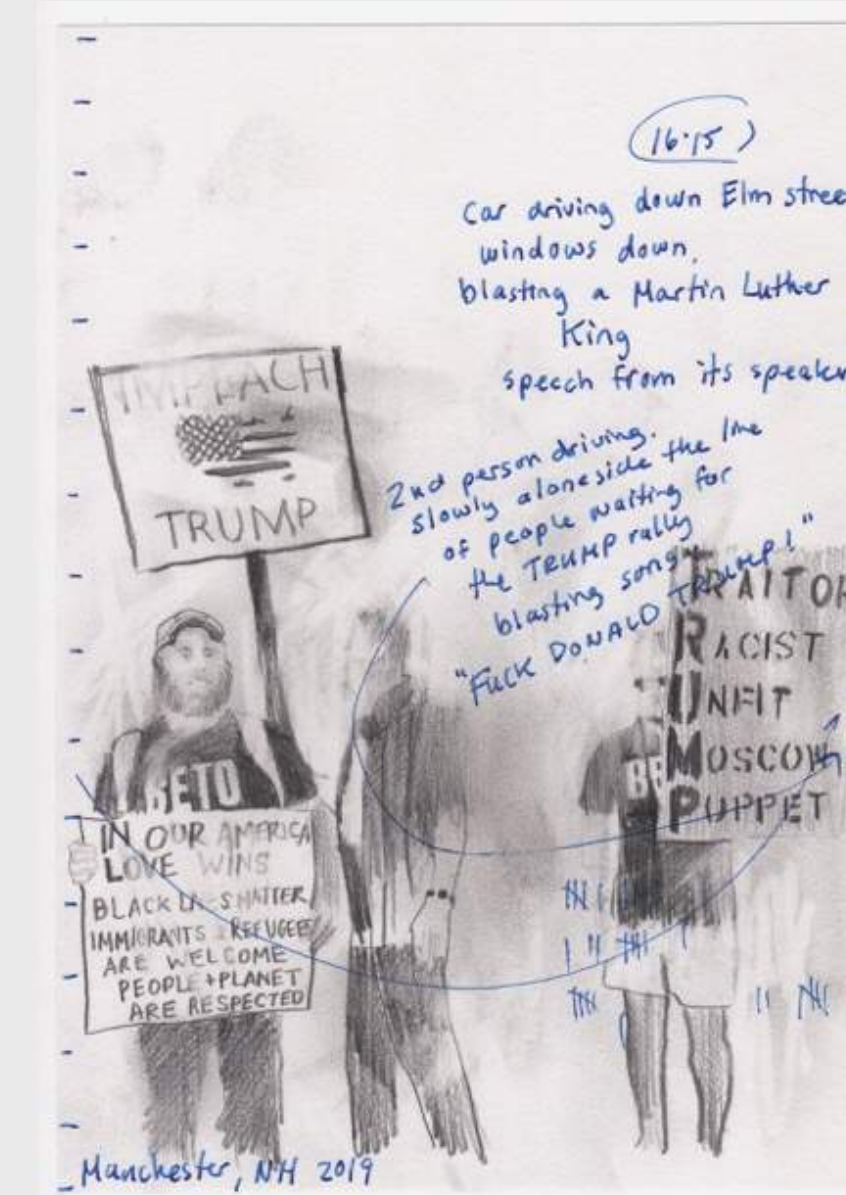 16.15
Car driving down Elm stree
windows down.
blasting a Martin Luther
King
speech from its speaker
2nd person driving.
slowly aloneside the line
of people waiting for
the TRUMP rally
blasting song
"FUCK DONALD TRUMP!"
IMPEACH
TRUMP
BETO
IN OUR AMERICA
LOVE WINS
BLACK LIVES MATTER
IMMIGRANTS & REFUGEES
ARE WELCOME
PEOPLE + PLANET
ARE RESPECTED
TRAITOR
RACIST
UNFIT
MOSCOW
PUPPET
BE
Manchester, NH 2019